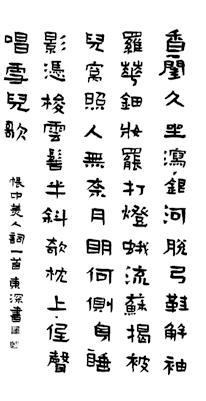 香閨久坐瀉銀河脫弓鞋解袖
羅鈿妝罷打燈蛾流蘇揭被
兒窩照人無奈月明何側身睡
影憑梭雲髻半斜欹枕上低聲
唱雪兒歌
帳中美人詞一首東深書